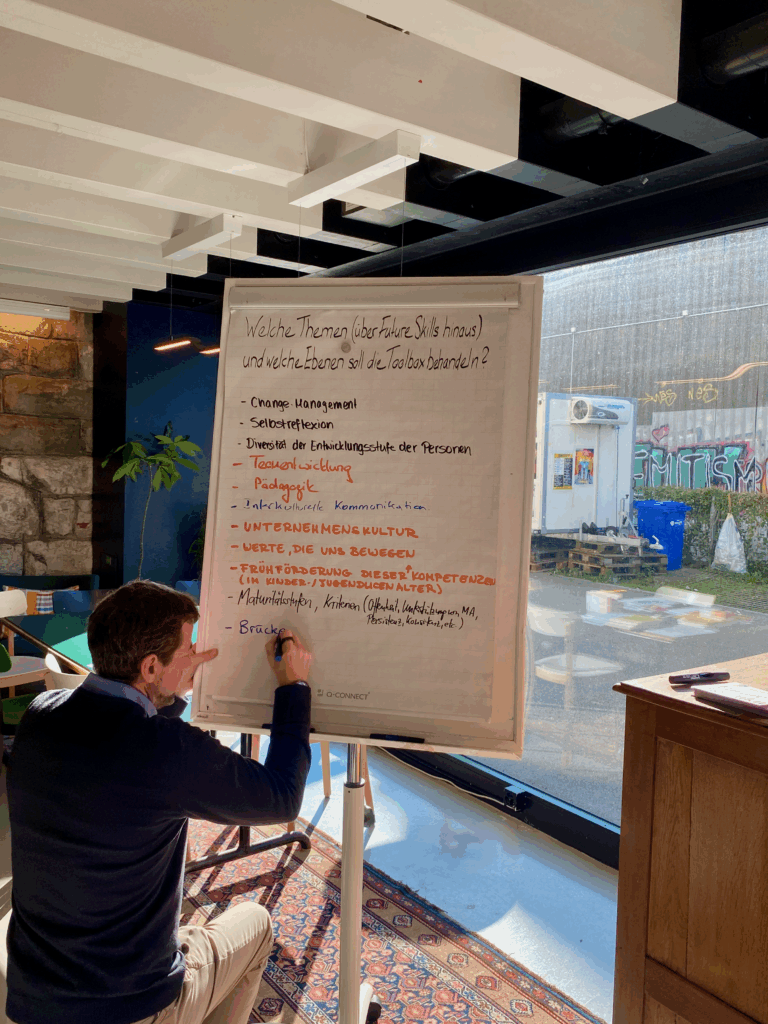 Welche Themen (über Future Skills hinaus)
und welche Ebenen soll die Toolbox behandeln?
- Change-Management
- Selbstreflexion
- Diversität der Entwicklungsstufe der Personen
- Teamentwicklung
- Pädagogik
- Interkulturelle Kommunikation
- UNTERNEHMENSKULTUR
- WERTE, DIE UNS BEWEGEN
- FRÜHFÖRDERUNG DIESER KOMPETENZEN
(IM KINDER-/JUGENDLICHENALTER)
- Maturitätsstufen, Kriterien (Offenheit, Unterstützung von MA,
Persistenz, etc.)
- Brücke
Q-CONNECT